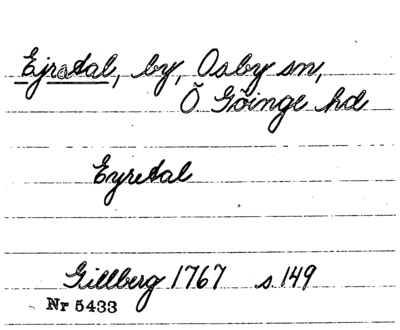 Ejradal, by, Osby sn,
Ö Göinge hd
Eyredal
Gillberg 1767 s 149
Nr 5433